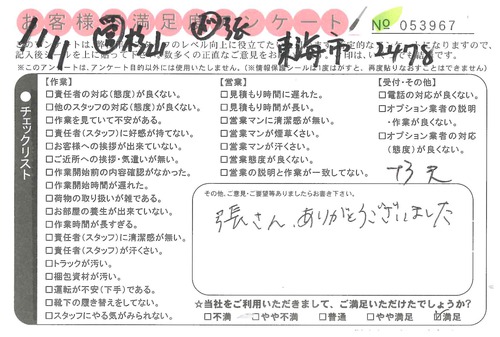 お客様満足度アンケート
№ 053967
1/11
東海市
2478
※このアンケートは、アンケート目的以外には使用いたしません。(※情報保護シールは1度はがすと、再度貼りなおすことはできません)
チェックリスト
【作業】
□責任者の対応(態度)が良くない。
□他のスタッフの対応(態度)が良くない。
□作業を見ていて不安がある。
□責任者(スタッフ)に好感が持てない。
□お客様への挨拶が出来ていない。
□ご近所への挨拶・気遣いが無い。
□作業開始前の内容確認がなかった。
□作業開始時間が遅れた。
□荷物の取り扱いが雑である。
□お部屋の養生が出来ていない。
□作業時間が長すぎる。
□責任者(スタッフ)に清潔感が無い。
□責任者(スタッフ)が汗くさい。
□トラックが汚い。
□梱包資材が汚い。
□運転が不安(下手)である。
□靴下の履き替えをしてない。
□スタッフにやる気がみられない。
【営業】
□見積もり時間に遅れた。
□見積もり時間が長い。
□営業マンに清潔感が無い。
□営業マンが煙草くさい。
□営業マンが汗くさい。
□営業態度が良くない。
□営業の説明と作業が一致してない。
【受付・その他】
□電話の対応が良くない。
□オプション業者の説明
・作業が良くない。
□オプション業者の対応
(態度)が良くない。
その他、ご意見・ご要望等ありましたらお書き下さい。
張さん、ありがとうございました
☆当社をご利用いただきまして、ご満足いただけたでしょうか?
□不満 □やや不満 □普通 □やや満足 ☑満足